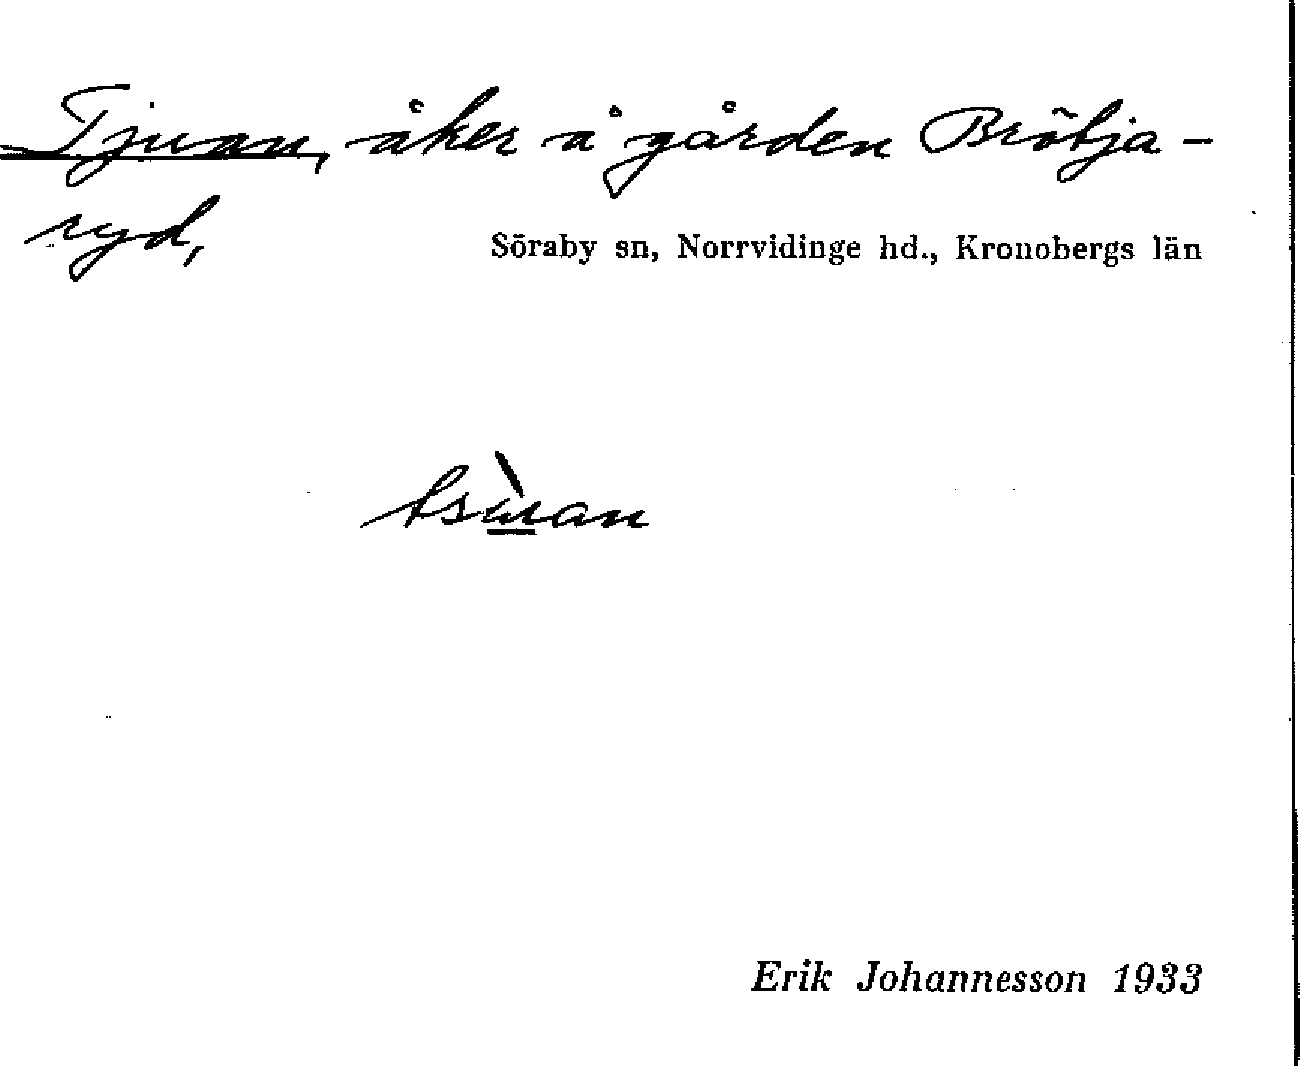 Tjuan, åker å gården Brötja-
ryd,
Söraby sn, Norrvidinge hd., Kronobergs län
Erik Johannesson 1933